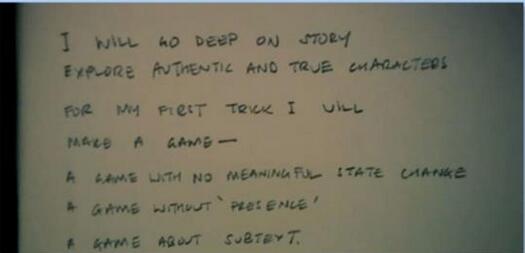 I WILL GO DEEP ON STORY
EXPLORE AUTHENTIC AND TRUE CHARACTERS
FOR MY FIRST TRICK I WILL
MAKE A GAME —
A GAME WITH NO MEANINGFUL STATE CHANGE
A GAME WITHOUT 'PRESENCE'
A GAME ABOUT SUBTEXT.